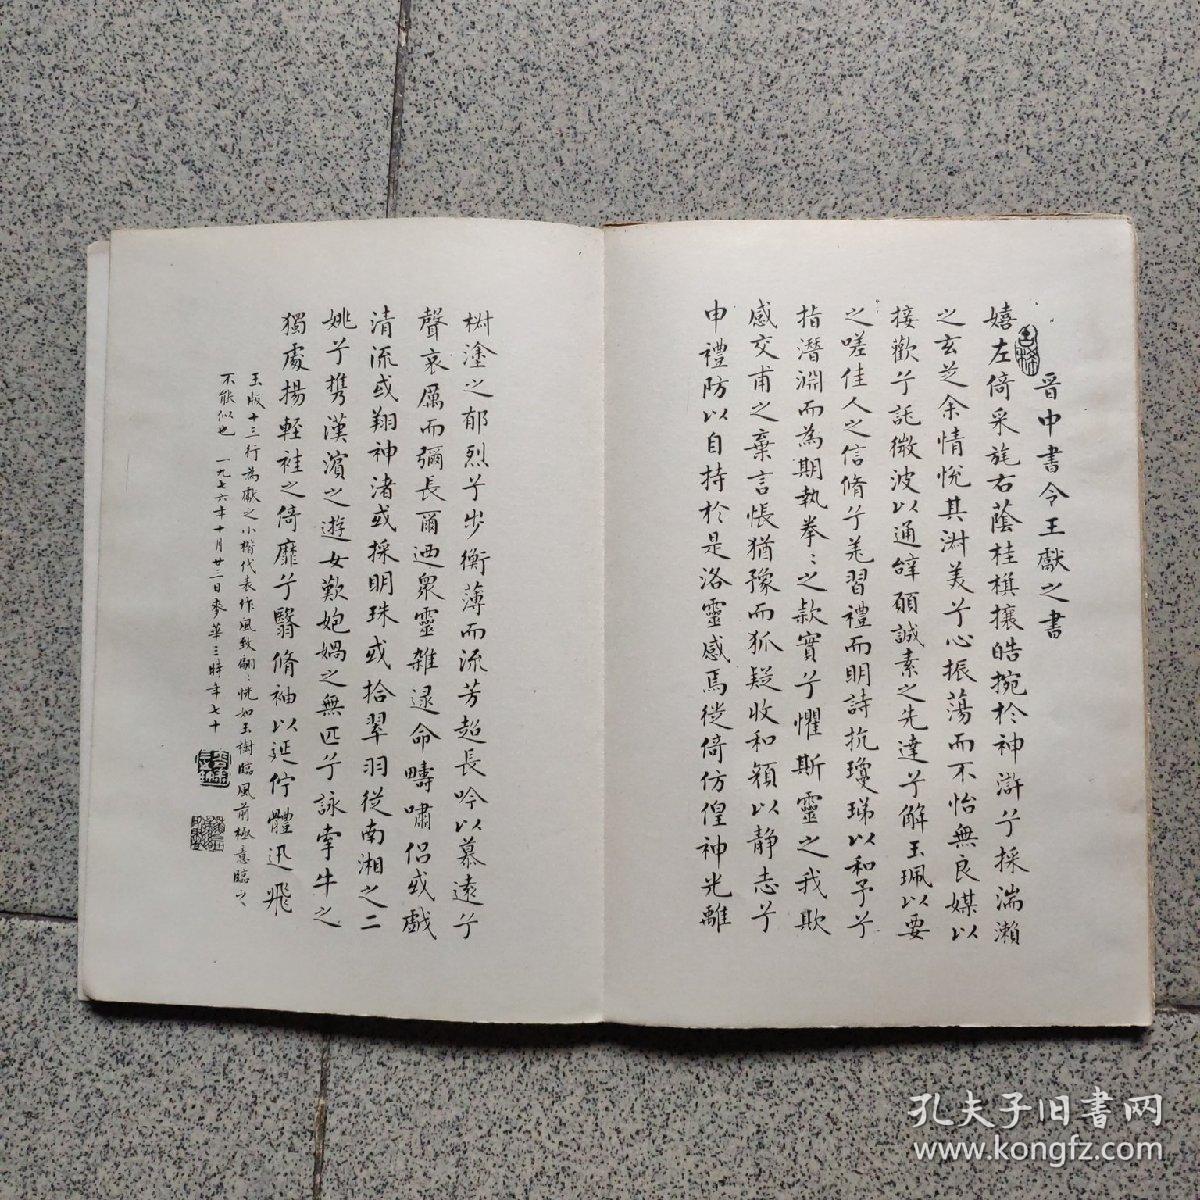 晋中書令王獻之書
嬉左倚采旄右蔭桂旗攘皓捥於神滸兮採湍瀨
之玄芝余情恱其淋美兮心振蕩而不怡無良媒以
接歡兮託微波以通辭願誠素之先達兮解玉珮以要
之嗟佳人之信脩兮羌習禮而明詩抗瓊珶以和予兮
指潛淵而為期執拳〻之款實兮懼斯靈之我欺
感交甫之棄言悵猶豫而狐疑收和顏以静志兮
申禮防以自持於是洛靈感焉徙倚仿偟神光離
樹塗之郁烈兮步衡薄而流芳超長吟以慕遠兮
聲哀厲而彌長爾迺眾靈雜遝命疇嘯侶或戲
清流或翔神渚或採明珠或拾翠羽從南湘之二
姚兮携漢濱之遊女歎匏媧之無匹兮詠牽牛之
獨處揚輕袿之倚靡兮翳脩袖以延佇體迅飛
玉版十三行為獻之小楷代表作風致翩〻恍如玉樹臨風前極意臨之
不能似也 一九七六年十月廿二日麥華三時年七十
孔夫子旧書网
www.kongfz.com